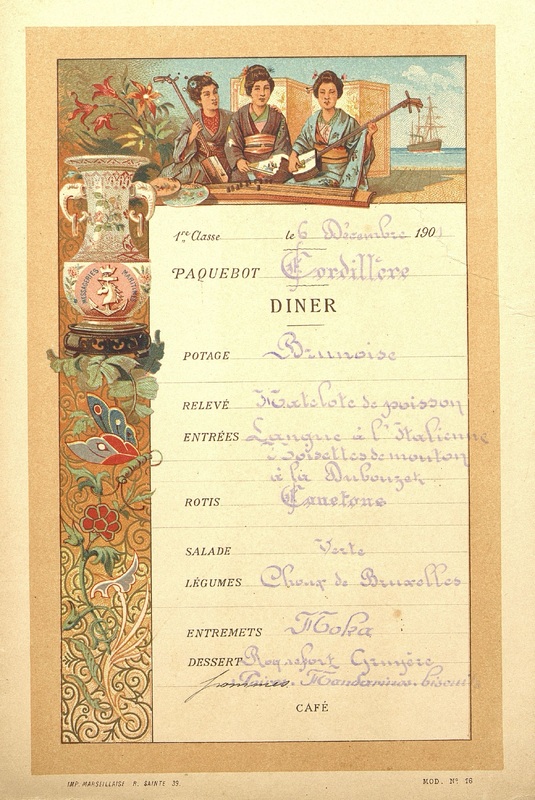 MESSAGERIES MARITIMES
1re Classe le 6 Décembre 190
PAQUEBOT Cordillère
DINER
POTAGE Brunoise
RELEVÉ Matelote de poisson
ENTRÉES Langue à l'Italienne
Noisettes de mouton
à la Dubouzet
ROTIS Canetons
SALADE Verte
LÉGUMES Choux de Bruxelles
ENTREMETS Moka
DESSERT Roquefort Gruyère
pommes Poires. Mandarines. biscuits
CAFÉ
IMP. MARSEILLAISE R. SAINTE 39
MOD. No 16